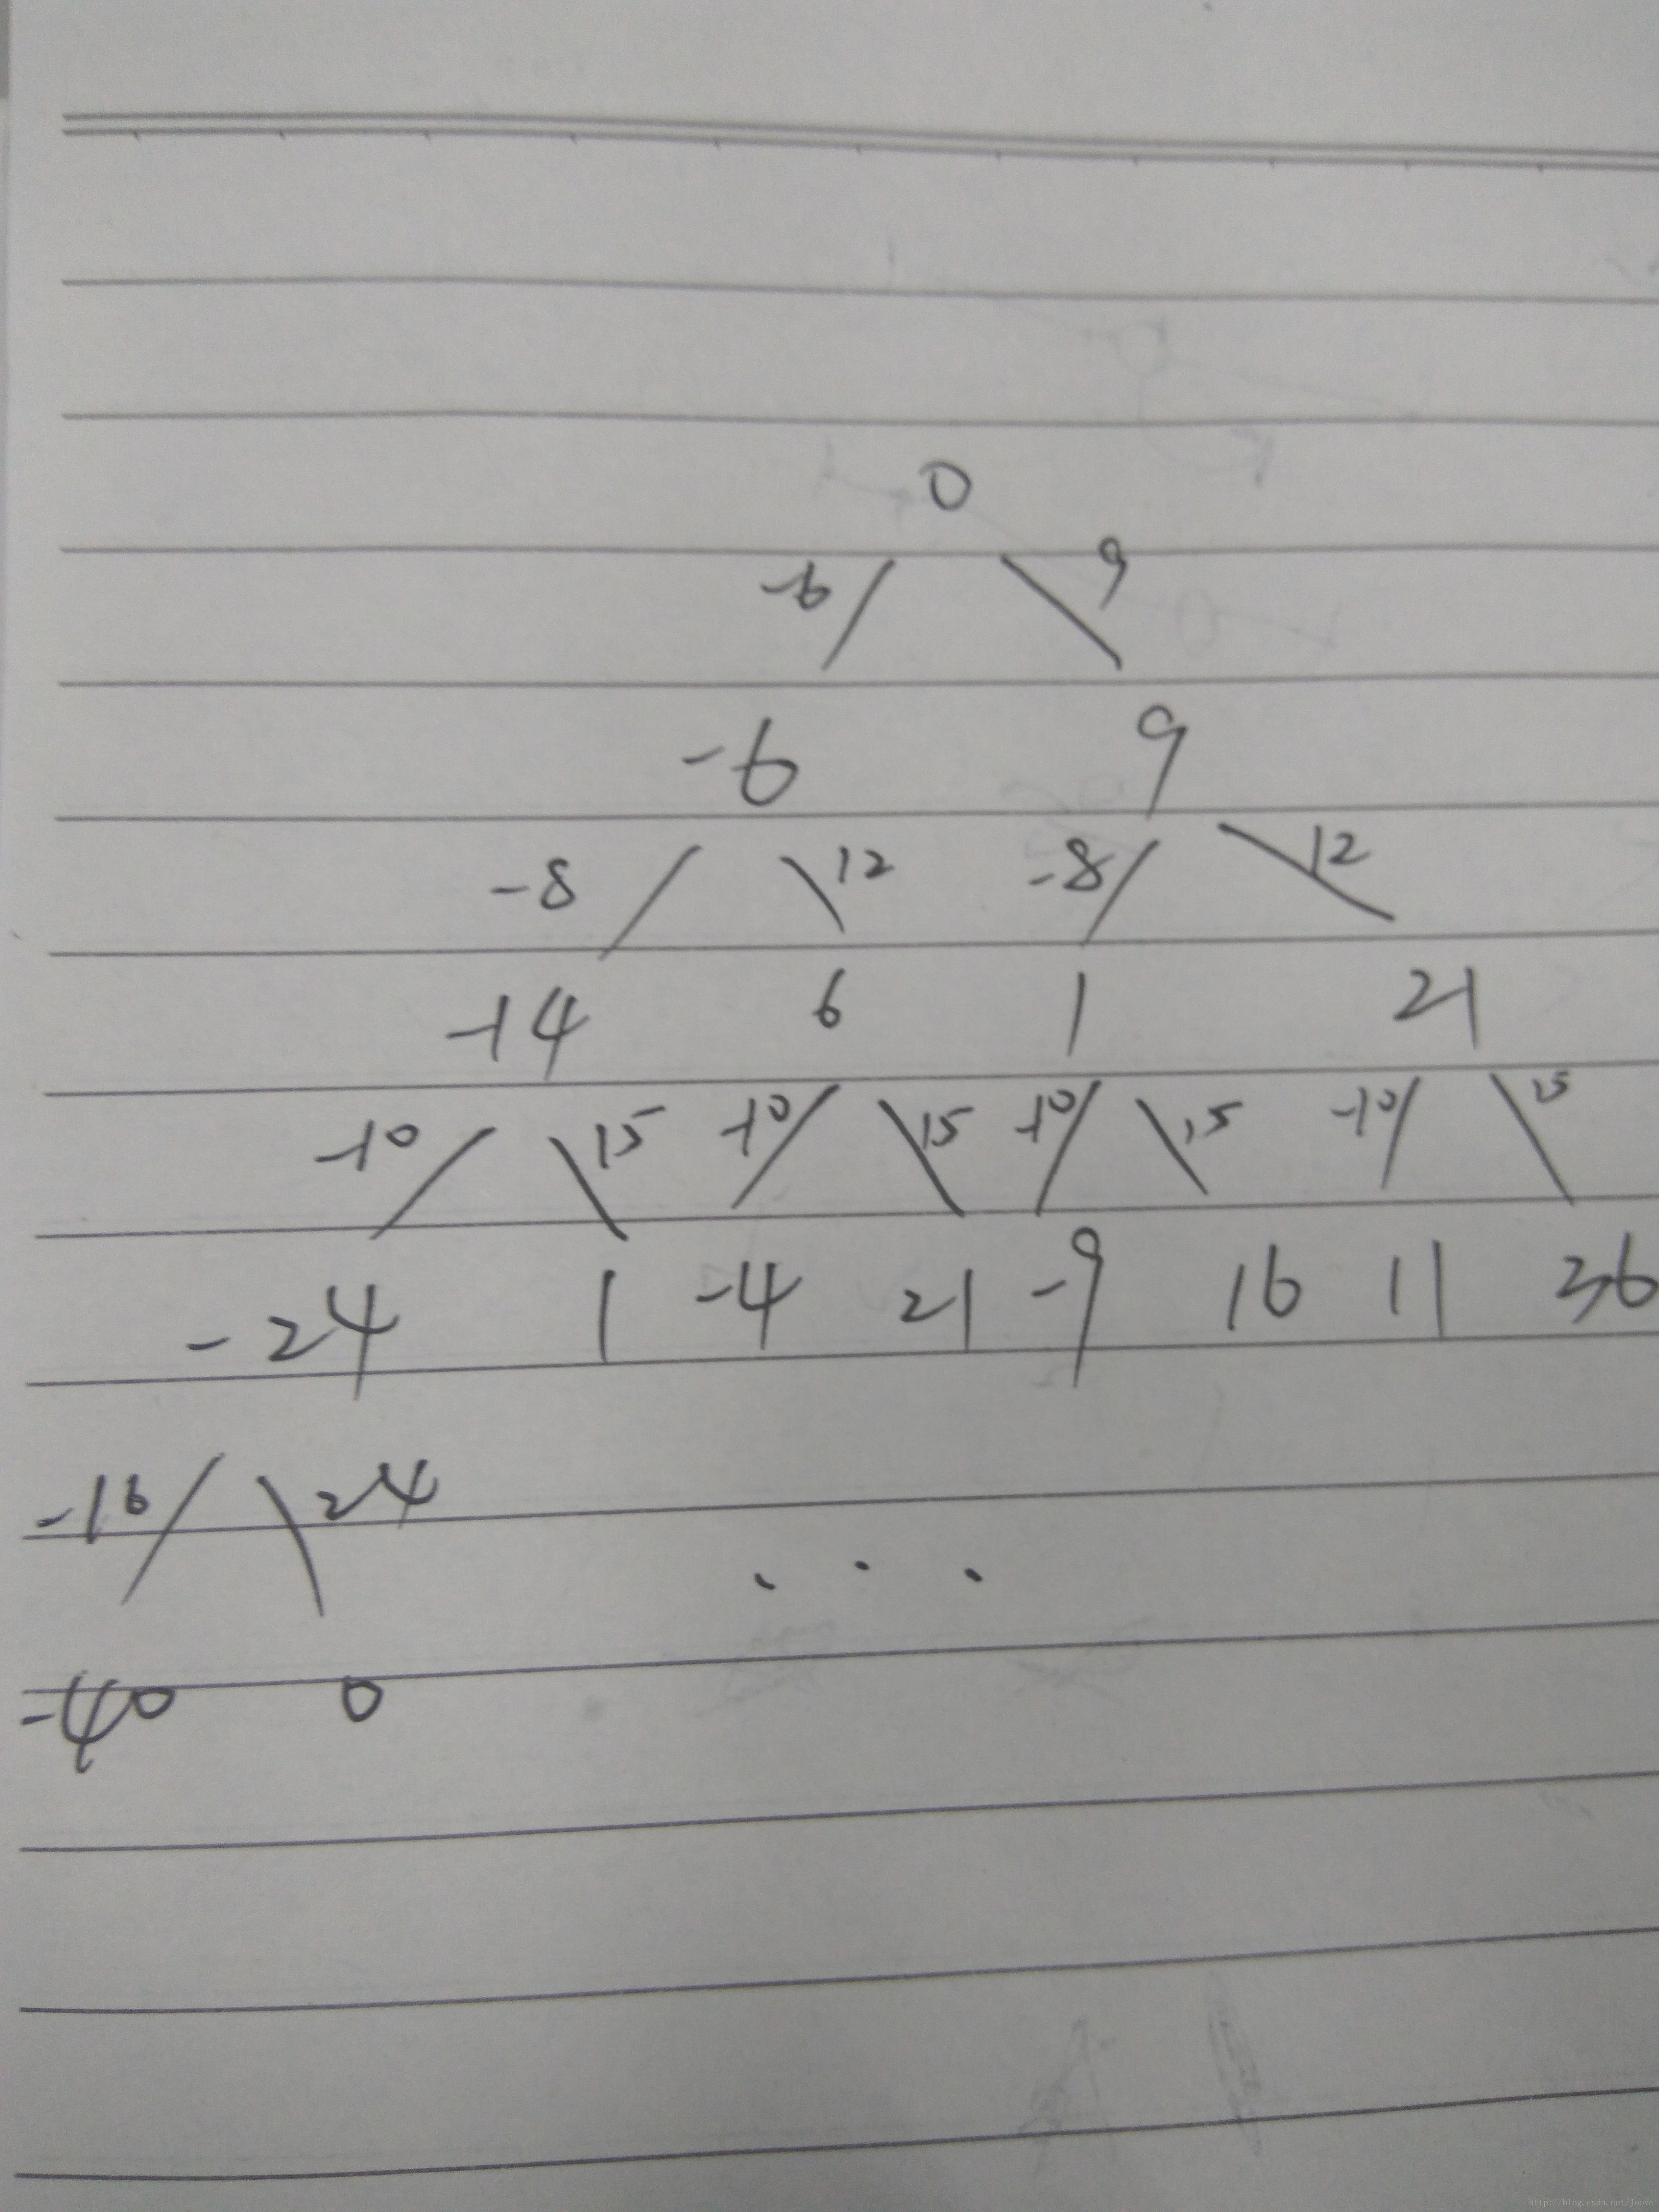 0
-6 9
-6 9
-8 12 -8 12
-14 6 1 21
-10 15 -10 15 -10 15 -10 15
-24 1 -4 21 -9 16 11 36
-16 24
. . .
-40 0